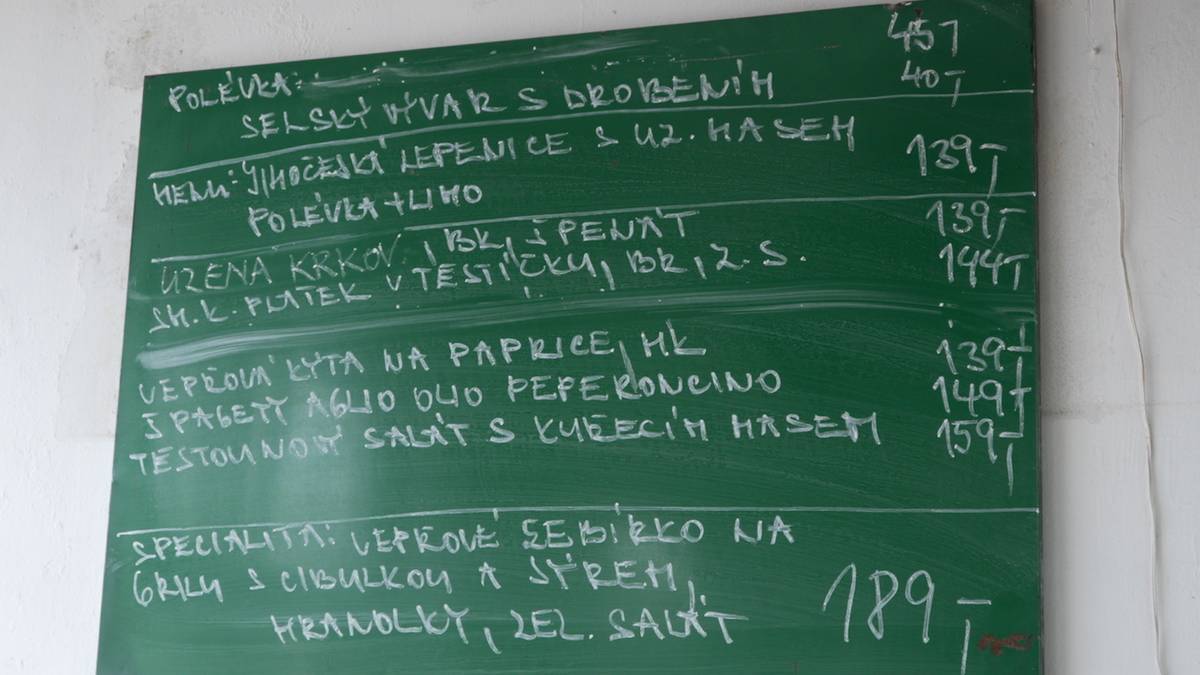 POLÉVKA: 45,-
SELSKÝ VÝVAR S DROBENÍM 40,-
MENU: JIHOČESKÁ LEPENICE S UZ. MASEM 139,-
POLÉVKA + LIMO
UZENÁ KRKOV. , BK, ŠPENÁT 139,-
SM. K. PLÁTEK V TĚSTÍČKU, BR, Z. S. 144,-
VEPŘOVÁ KÝTA NA PAPRICE, HK 139,-
ŠPAGETY AGLIO OLIO PEPERONCINO 149,-
TĚSTOVINOVÝ SALÁT S KUŘECÍM MASEM 159,-
SPECIALITA: VEPŘOVÉ ŽEBÍRKO NA
GRILU S CIBULKOU A SÝREM,
HRANOLKY, ZEL. SALÁT 189,-